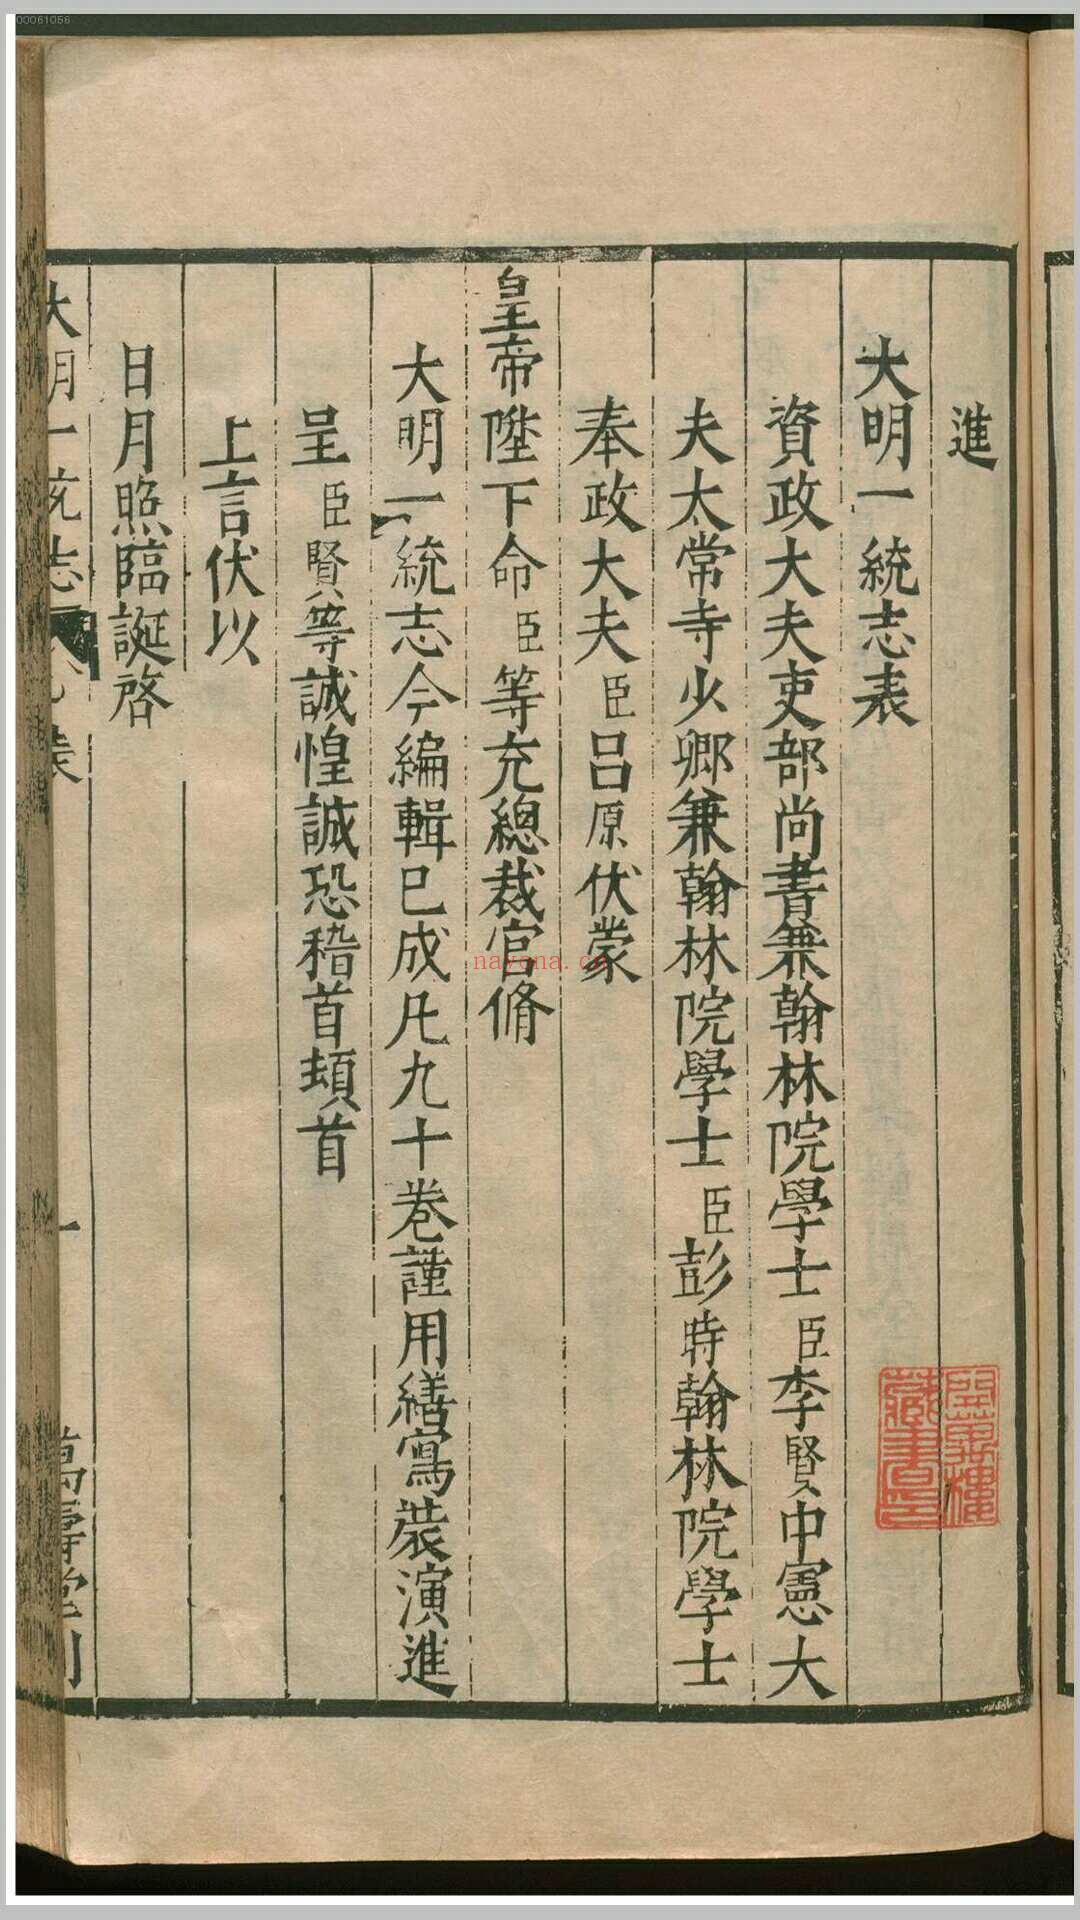 00061056
進
大明一統志表
資政大夫吏部尚書兼翰林院學士臣李賢中憲大
夫太常寺少卿兼翰林院學士臣彭時翰林院學士
奉政大夫臣呂原伏蒙
皇帝陛下命臣等充總裁官脩
大明一統志今編輯已成凡九十卷謹用繕寫裝演進
呈臣賢等誠惶誠恐稽首頓首
上言伏以
日月照臨誕啓
大明一統志 表 一 萬壽堂刊
開萬樓
藏書印
nayona.cn